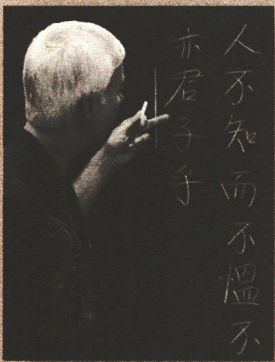 人不知而不慍不
亦君子乎